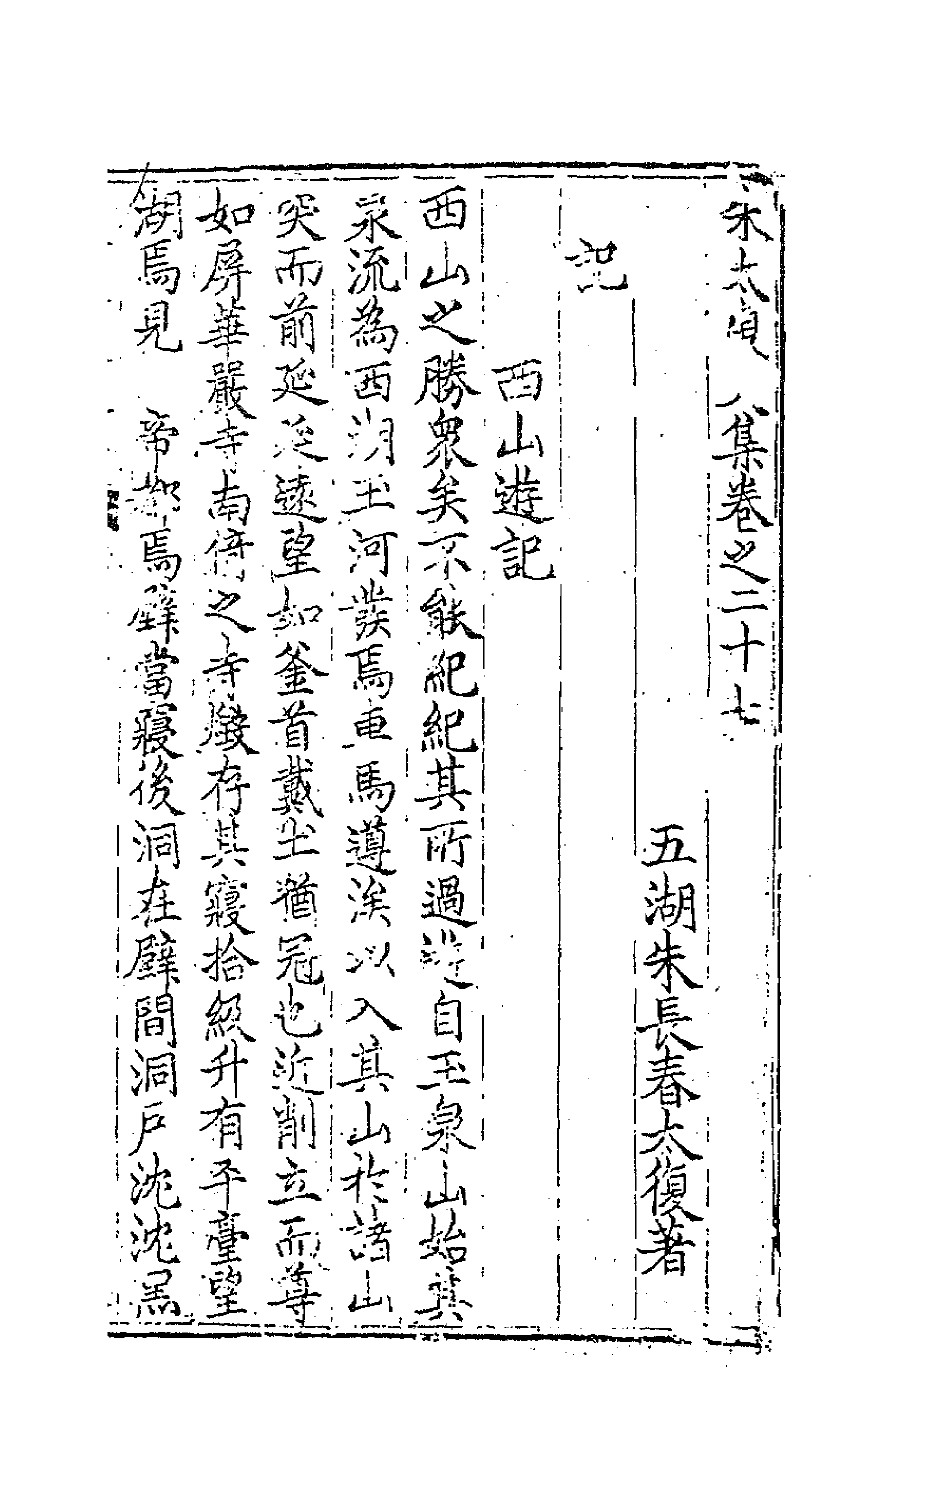 朱太復集卷之二十七
五湖朱長春太復著
記
西山遊記
西山之勝衆矣不能紀紀其所過遊自玉泉山始其
泉流為西湖玉河發焉車馬導涘以入其山於諸山
突而前延延遠望如釜首戴㞷猶冠也近削立而尊
如屏華嚴寺南倚之寺燬存其寢拾級升有平臺望
湖焉見 帝都焉壁當寢後洞在壁間洞戶沈沈黑